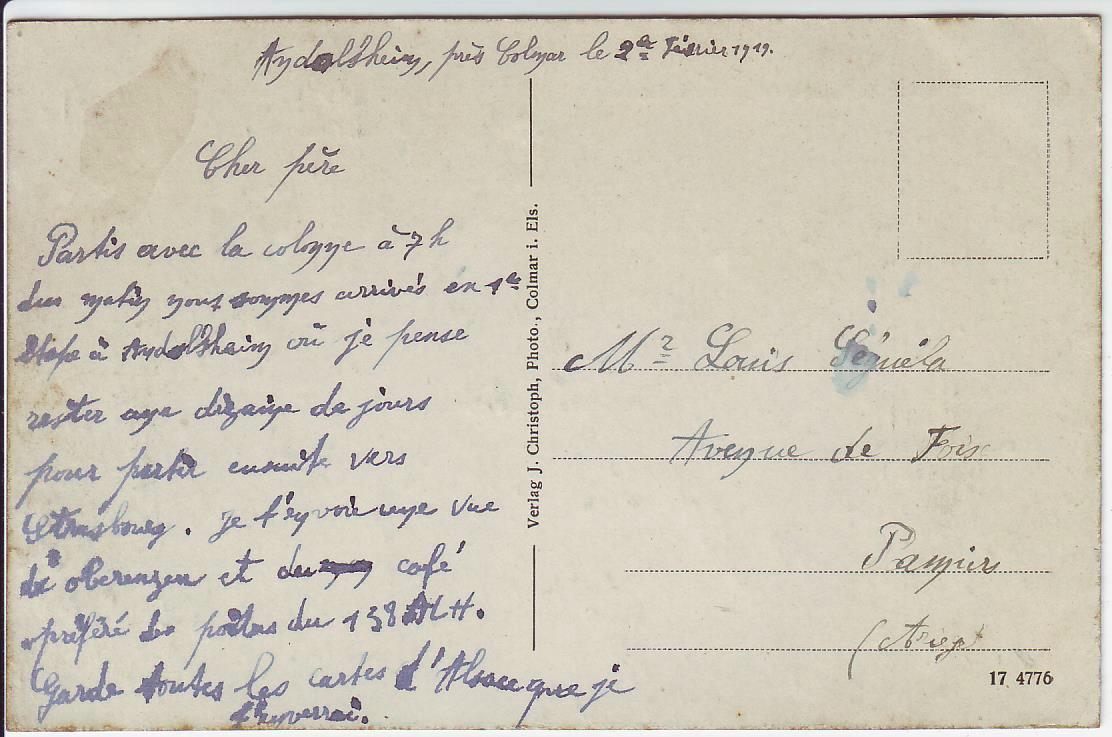 Andolsheim, près Colmar le 2 Février 1919.
Cher père
Partis avec la colonne à 7 h
du matin nous sommes arrivés en 1e
étape à Andolsheim où je pense
rester une dizaine de jours
pour partir ensuite vers
Strasbourg. Je t'envoie une vue
de oberenzen et du café
préféré des poilus du 138 ALH.
Garde toutes les cartes d'Alsace que je
t'enverrai.
Verlag J. Christoph, Photo., Colmar i. Els.
Mr Louis Séguéla
Avenue de Foix
Pamiers
(Ariège)
17 4776